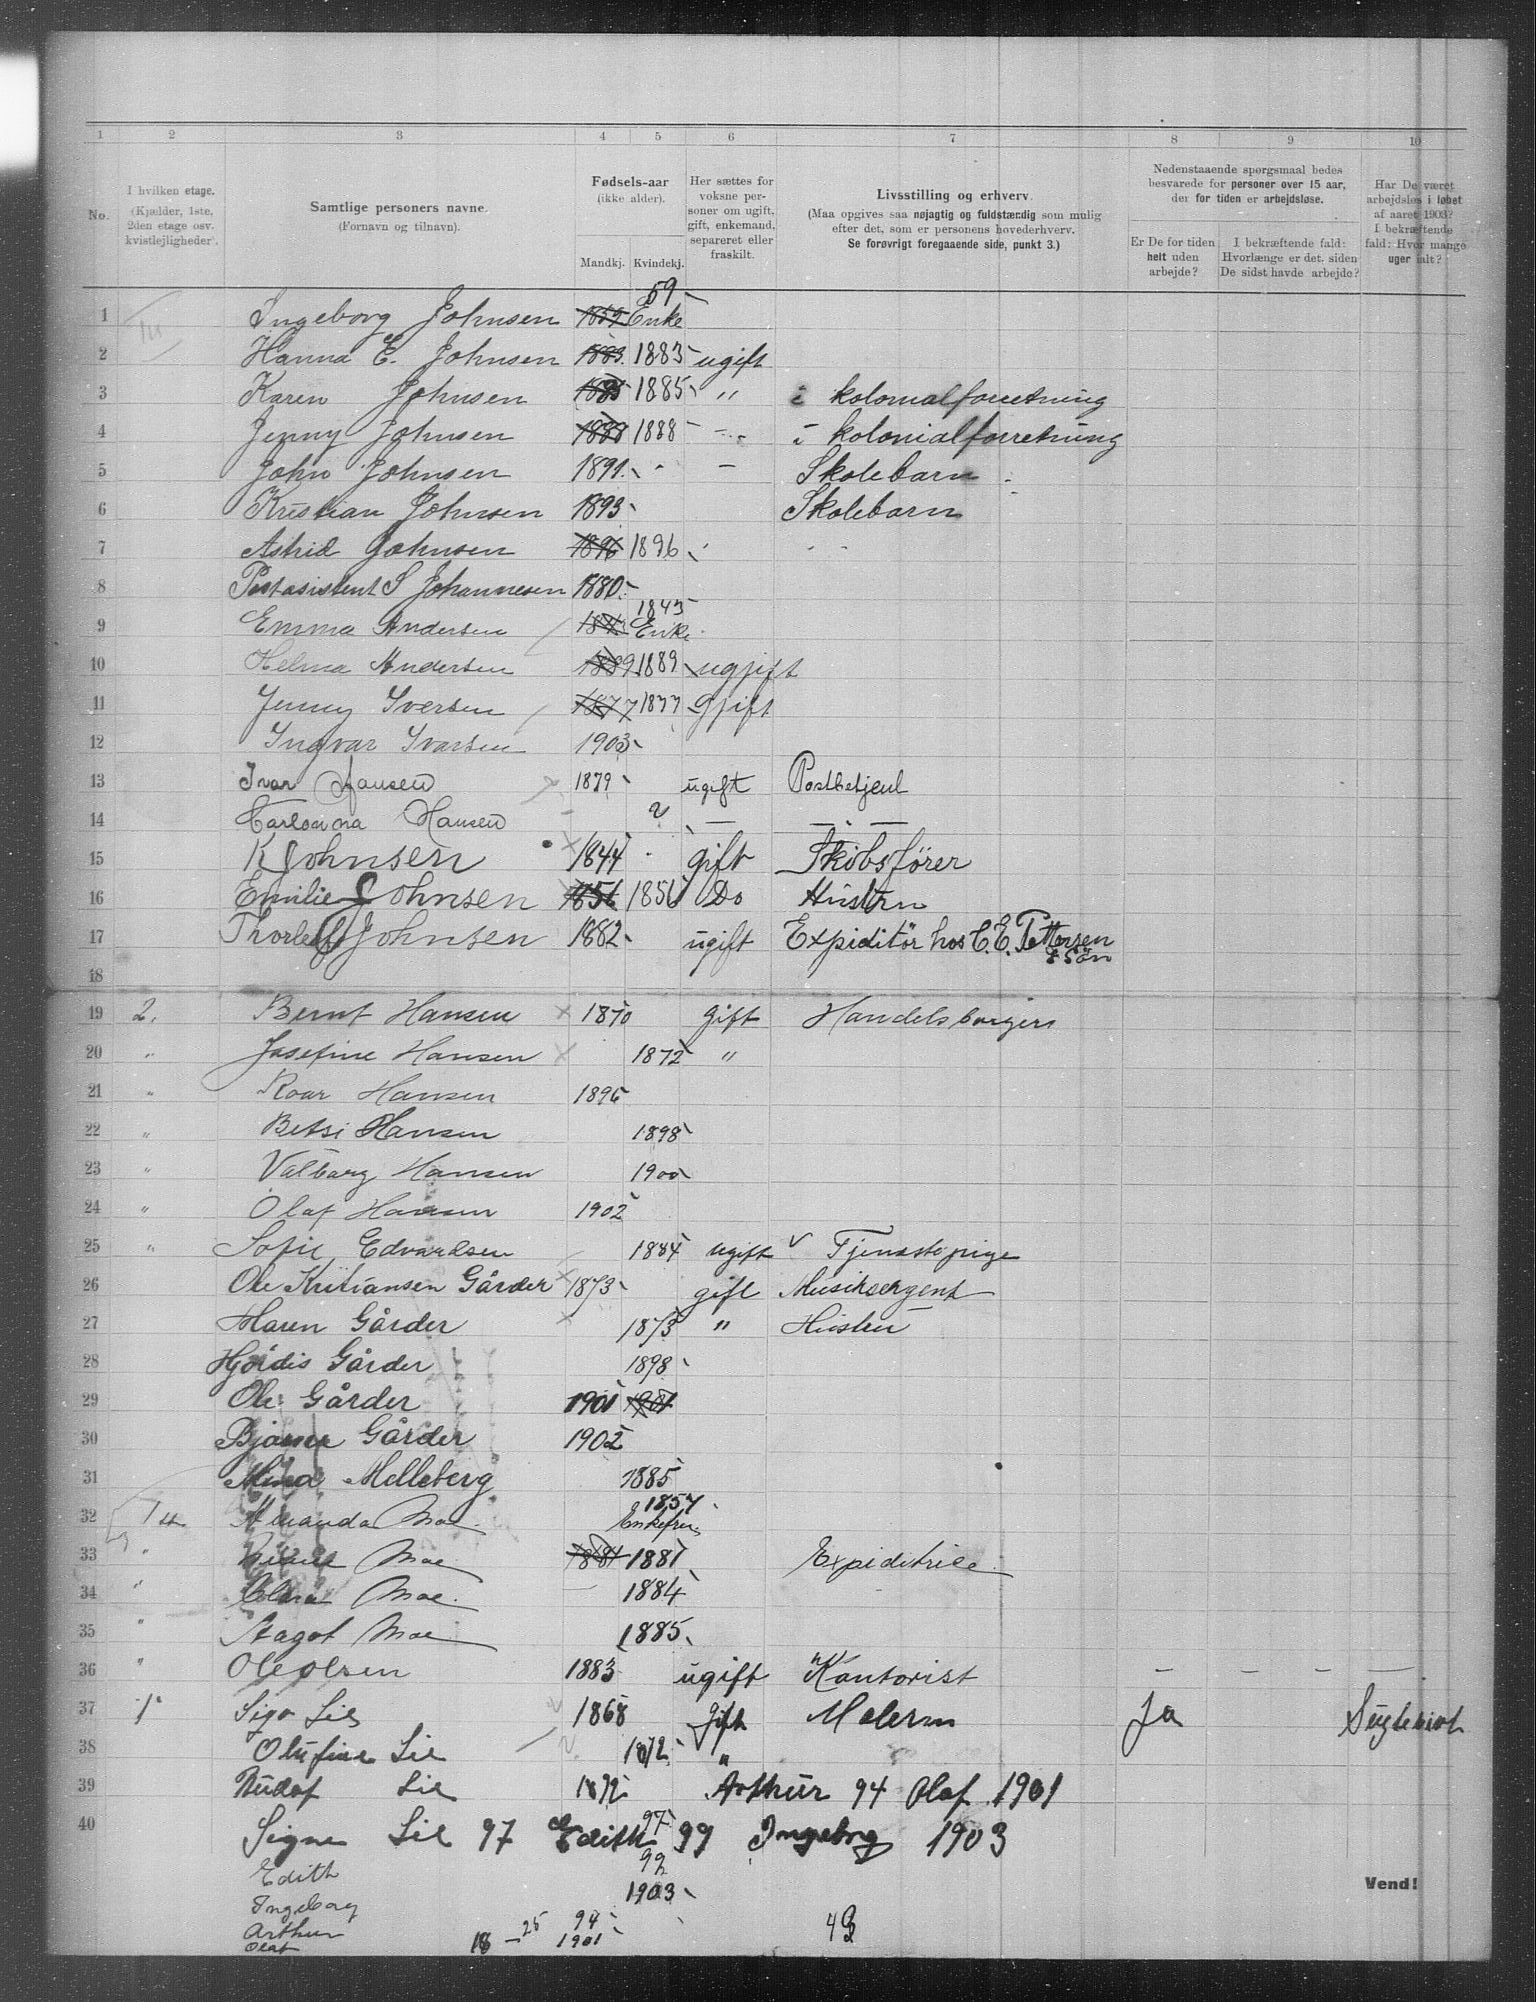 1 2 3 4 5 6 7 8 9 10
No.
I hvilken etage. (Kjælder, 1ste, 2den etage osv. kvistlejligheder).
Samtlige personers navne. (Fornavn og tilnavn).
Fødsels-aar (ikke alder).
Mandkj. Kvindekj.
Her sættes for voksne personer om ugift, gift, enkemand, separeret eller fraskilt.
Livsstilling og erhverv.
(Maa opgives saa nøjagtig og fuldstændig som mulig efter det, som er personens hovederhverv. Se forøvrigt foregaaende side, punkt 3.)
Nedenstaaende spørgsmaal bedes besvarede for personer over 15 aar, der for tiden er arbejdsløse.
Er De for tiden helt uden arbejde?
I bekræftende fald: Hvorlænge er det, siden De sidst havde arbejde?
Har De været arbejdsløs i løbet af aaret 1903? I bekræftende fald: Hvor mange uger ialt?
59
1 Ingeborg Johnsen 1859 Enke
2 Hanna E. Johnsen 1883 1883 ugift
3 Karen Johnsen 1885 1885 " i kolonialforretning
4 Jenny Johnsen 1888 1888 - i kolonialforretning
5 John Johnsen 1891 - Skolebarn
6 Kristian Johnsen 1893 Skolebarn
7 Astrid Johnsen 1896 1896
8 Postasistent S Johannesen 1880
1843
9 Emma Andersen 1843 Enke
10 Helma Andersen 1889 1889 ugjift
11 Jenny Iversen 1877 1877 Gjift
12 Ingvar Ivarsen 1903
13 Ivar Hansen 1879 ugift Postbetjent
14 Hansen
15 K Johnsen 1844 gift
16 Emilie Johnsen 1856 1856 Do Hustru
17 Thorleif Johnsen 1882 ugift Expiditör hos C. E. Pettersen & Sön
18
19 2. Bernt Hansen 1870 Gift Handelsborgers
20 " Josefine Hansen 1872 "
21 " Roar Hansen 1896
22 " Betsi Hansen 1898
23 " Valborg Hansen 1900
24 " Olaf Hansen 1902
25 " Sofie Edvardsen 1884 ugift Tjenestepige
26 Ole Kristiansen Gårder 1873 gift Musiksergent
27 Maren Gårder 1873 " Hustru
28 Hjördis Gårder 1898
29 Ole Gårder 1901 1901
30 Bjarne Gårder 1902
31 Mina Melleberg 1885
1857
32 Amanda Moe Enkefru
33 " Moe 1881 1881 Expiditrice
34 " Clara Moe 1884
35 " Aagot Moe 1885
36 " Ole Olsen 1883 ugift Kontorist
37 1 Lie 1868 Gift Malersv Ja
38 Olufine Lie 1872 "
39 Lie 1892 Arthur 94 Olaf 1901
40 Signe Lie 97 Edith 99 Ingeborg 1903
97
Edith 99
Ingeborg 1903
Arthur 94
Olaf 18 - 25 1901
Vend!